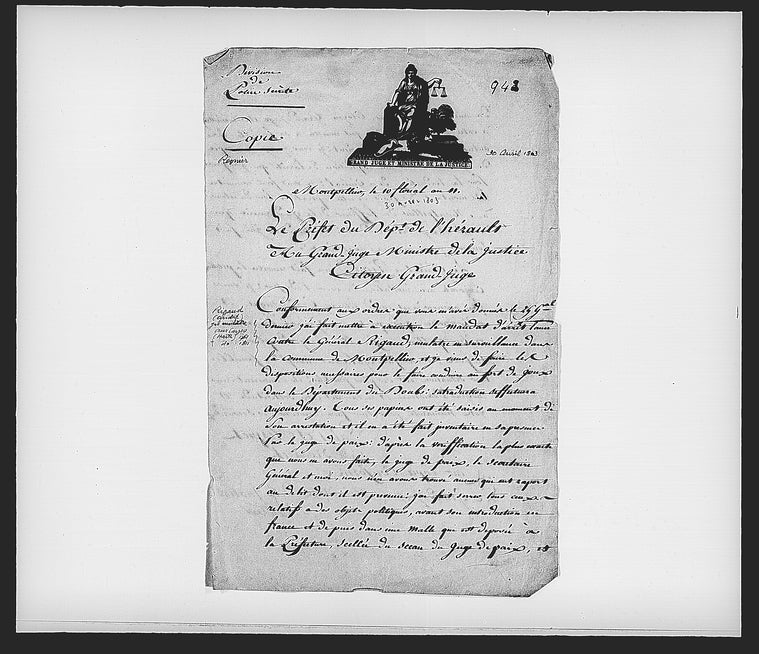 Division
de
Police Secrète
Copie
Regnier
GRAND JUGE ET MINISTRE DE LA JUSTICE.
942
30 Avril 1803
Montpellier, le 10 floréal an 11.
30 1803
Le Préfet du Dépt. de l'hérault
Au Grand Juge Ministre de la Justice
Citoyen Grand Juge
Rigaud
Conformement aux ordres que vous m'avés donnés le 25 Gal
dernier j'ai fait mettre à execution le mandat d'arrêt lancé
contre le Général Rigaud, mulatre en surveillance dans
la Commune de Montpellier, et je viens de faire les
dispositions necessaires pour le faire conduire au fort de Joux
dans le Département du Doubs: sa traduction s'effectuera
aujourdhuy. Tous ses papiers ont été saisis au moment de
son arrestation et il en a été fait inventaire en sa presence
Par le juge de paix: d'après la verification la plus exacte
que nous en avons faite, le juge de paix, le secretaire
Général et moi, nous n'en avons trouvé aucun qui eut raport
au delit dont il est prevenu: j'ai fait serrer tous ceux
relatifs a des objets politiques, avant son introduction en
france et depuis dans une malle qui est deposée à
la Préfecture, scellée du sceau du Juge de paix, et